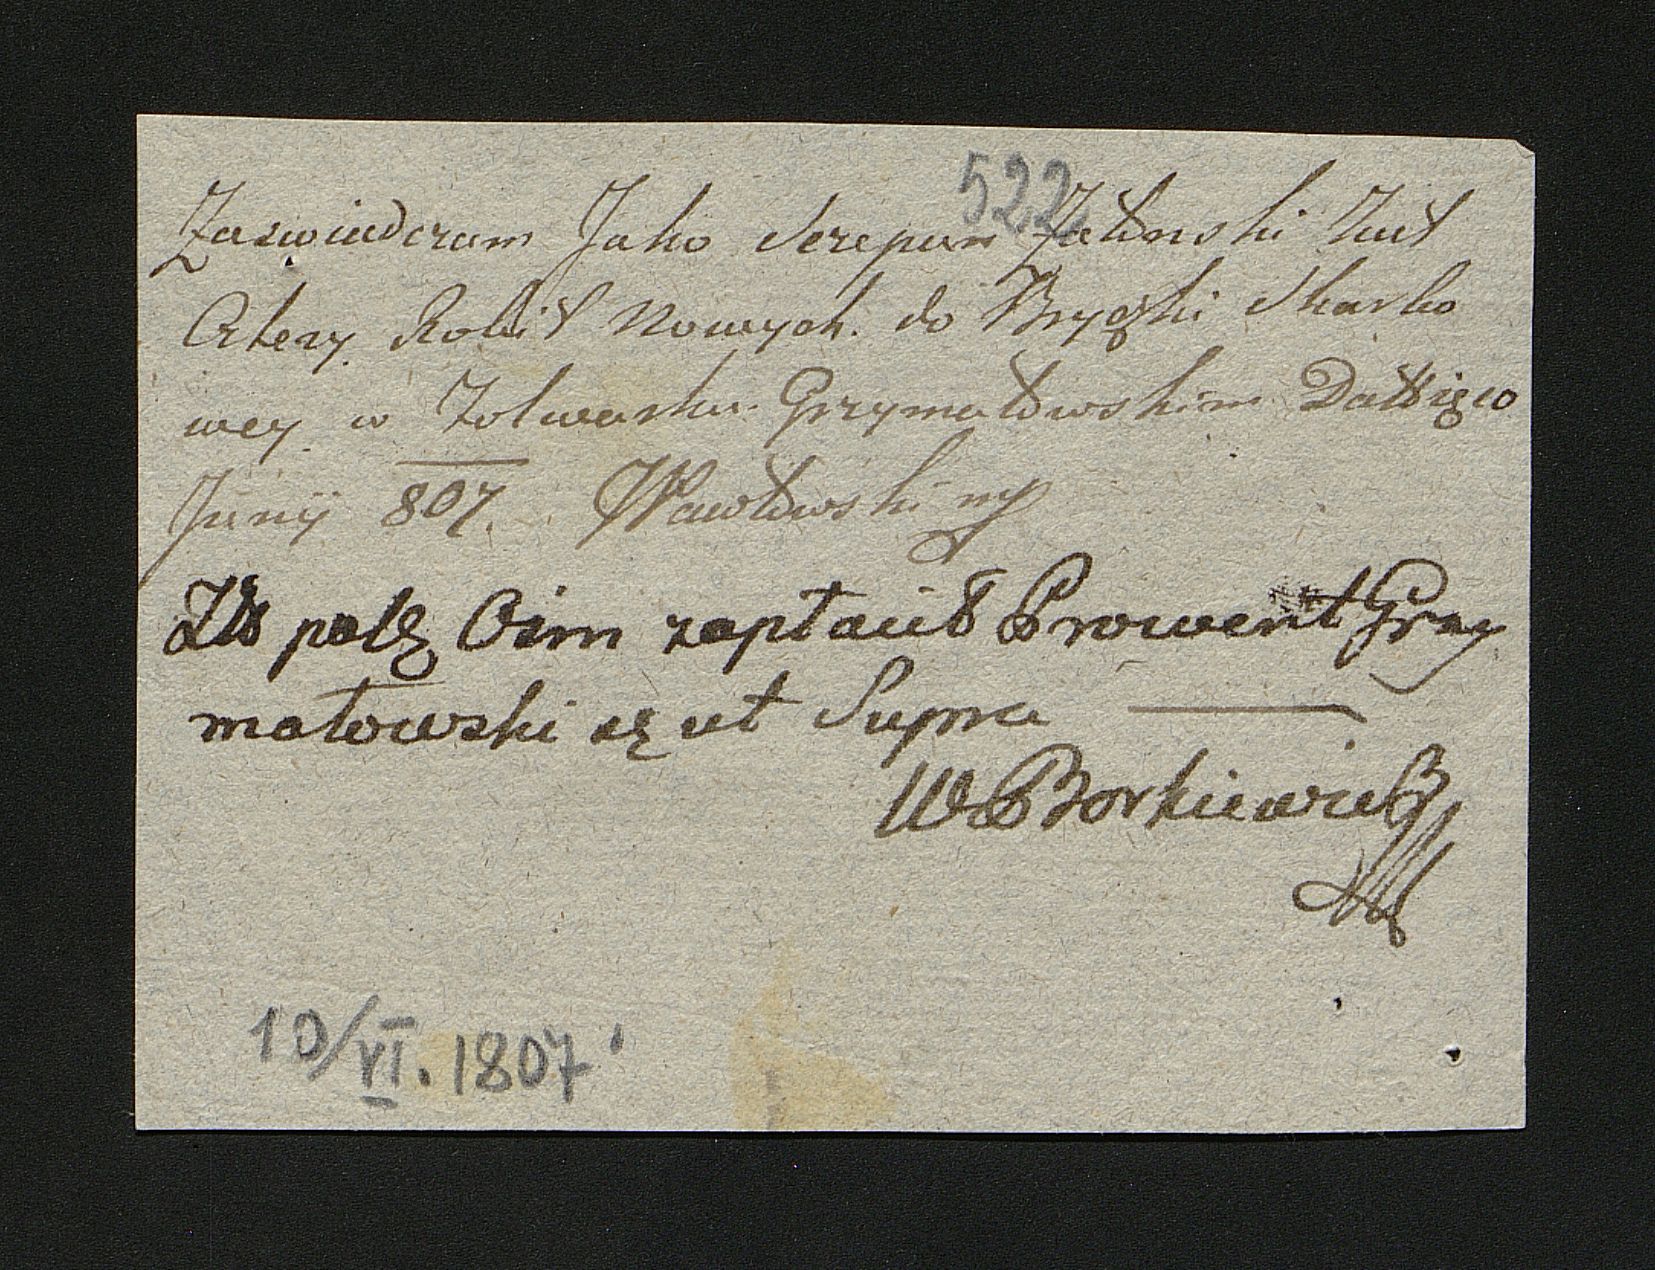 522
Zaswiadczam Jako Sczepan Jałinski Kuł
Cztery Robił Nowych do Bryczki Skarbo
wey w Folwarku Grzymałowskim Datt
Junij 807. Wawłowski mp
pols Osm zapłacił Prowent Grzy
małowski ut Supra
W Borkiewicz
10/VI. 1807